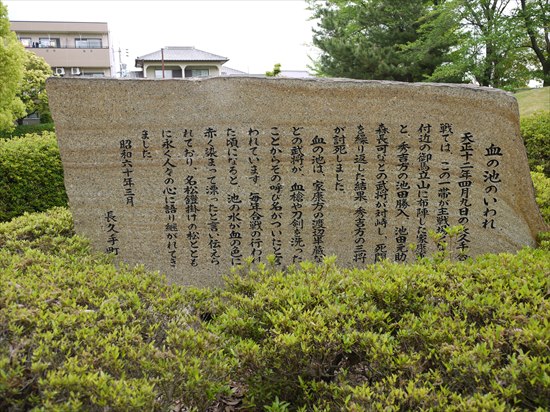 血の池のいわれ
天正十二年四月九日の長久手合
戦では、この一帯が主戦場
付近の御旗立山に布陣した家康軍
と、秀吉方の池田勝入、池田元助
森長可などの武将が対峙し、死闘
を繰り返した結果、秀吉方の三将
が討死しました。
血の池は、家康方の渡辺半蔵な
どの武将が、血槍や刀剣を洗った
ことからその呼び名がついたと
われています。毎年合戦の行わ
た頃になると、池の水が血の色に
赤く染まって漂ったと言い伝えら
れており、名松鎧掛けの松ととも
に永く人々の心に語り継がれてき
ました。
昭和六十年三月
長久手町